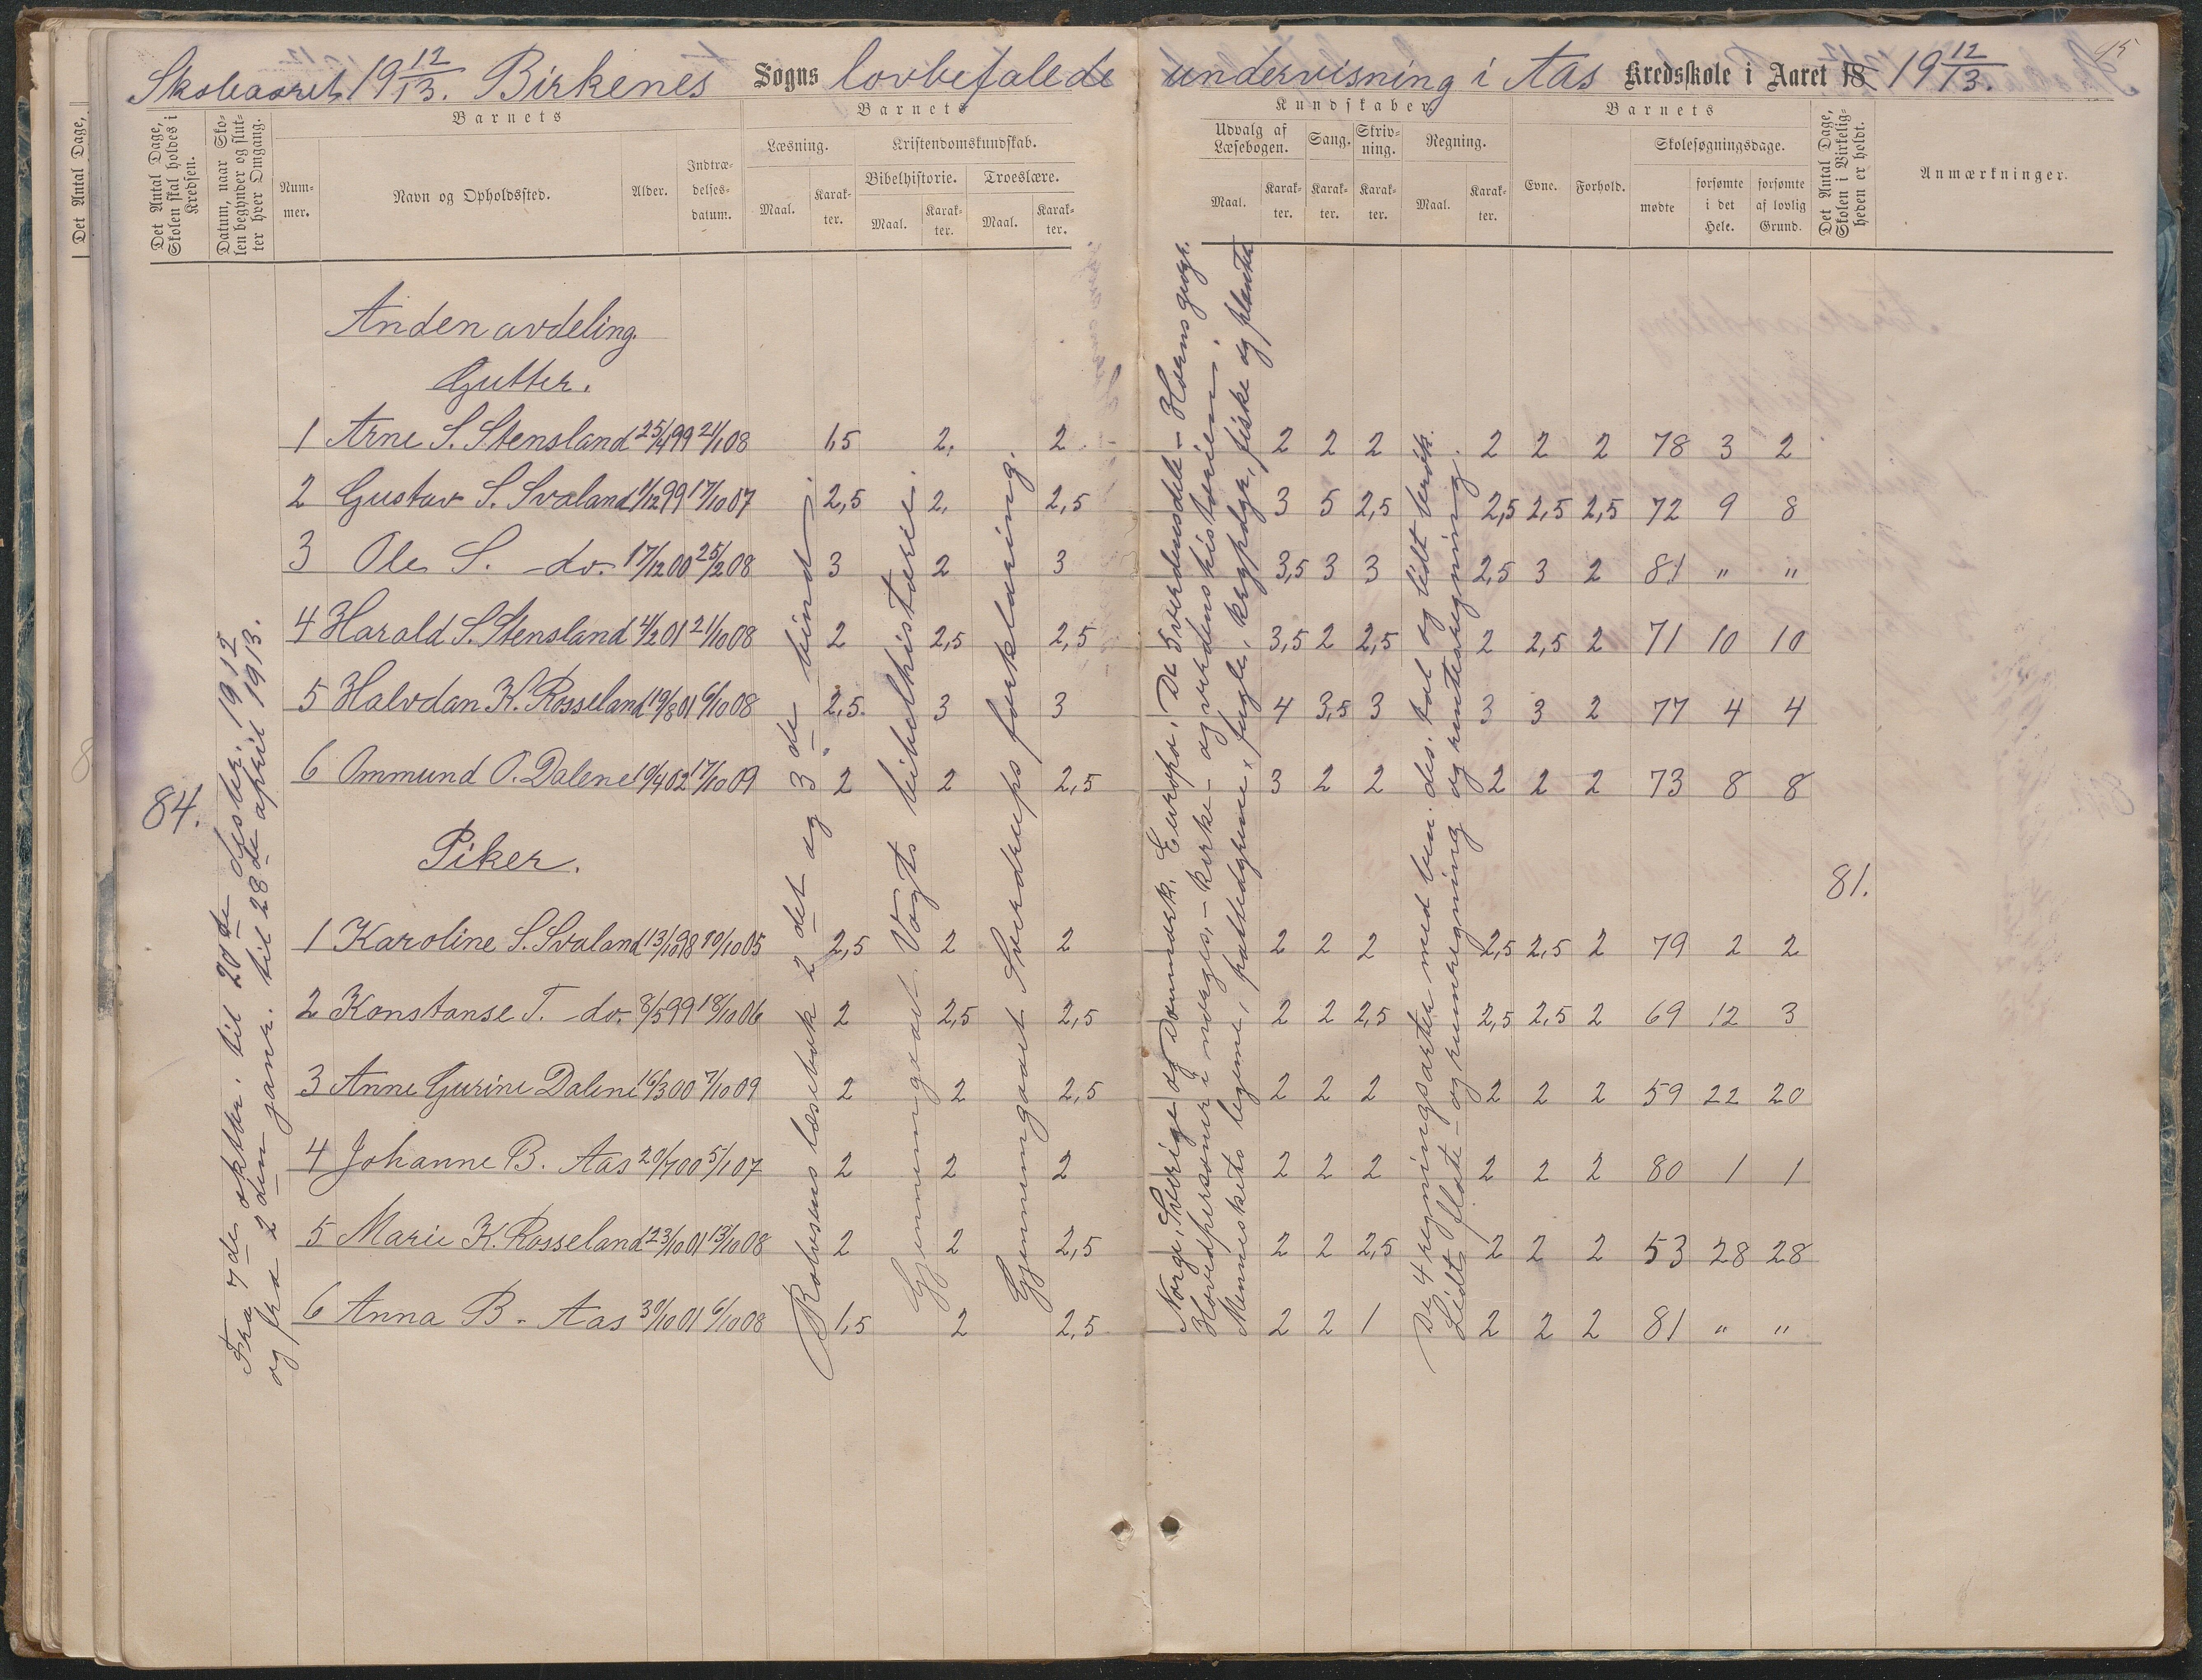 Skoleaaret 19 12/13. Birkenes Sogns lovbefalede undervisning i Aas Kredsskole i Aaret 18 19 12/13.
Det Antal Dage,
Det Antal Dage, Skolen skal holdes i Kredsen.
Datum, naar Skolen begynder og slutter hver Omgang.
Barnets
Nummer.
Navn og Opholdssted.
Alder.
Indtrædelsesdatum.
Barnets
Læsning.
Maal.
Karakter.
Kristendomskundskab.
Bibelhistorie.
Maal.
Karakter.
Troeslære.
Maal.
Karakter.
Kundskaber
Udvalg af Læsebogen.
Maal.
Karakter.
Sang.
Karakter.
Skrivning.
Karakter.
Regning.
Maal.
Karakter.
Barnets
Evne.
Forhold.
Skolesøgningsdage.
mødte
forsømte i det Hele.
forsømte af lovlig Grund.
Det Antal Dage, Skolen i Virkeligheden er holdt.
Anmærkninger.
84.
Fra 7de oktbr. til 20de desber. 1912
og fra 2den janr. til 28de april 1913.
Anden avdeling.
Gutter.
1 Arne S. Stensland 25/4 99 21/1 08 1,5 2. 2 2 2 2 2 2 2 78 3 2
2 Gustav S. Svaland 1/12 99 17/10 07 2,5 2. 2,5 3 5 2,5 2,5 2,5 2,5 72 9 8
3 Ole S. do. 17/12 00 25/2 08 3 2 3 3,5 3 3 2,5 3 2 81 " "
4 Harald S. Stensland 4/2 01 21/10 08 2 2,5 2,5 3,5 2 2,5 2 2,5 2 71 10 10
5 Halvdan K. Rosseland 19/8 01 6/10 08 2,5. 3 3 4 3,5 3 3 3 2 77 4 4
6 Ommund O. Dalene 10/4 02 17/10 09 2 2 2,5 3 2 2 2 2 2 73 8 8
Piker.
1 Karoline S. Svaland 13/10 98 10/10 05 2,5 2 2 2 2 2 2,5 2,5 2 79 2 2
2 Konstanse T. do. 8/5 99 18/10 06 2 2,5 2,5 2 2 2,5 2,5 2,5 2 69 12 3
3 Anne Gurine Dalene 16/3 00 7/10 09 2 2 2,5 2 2 2 2 2 2 59 22 20
4 Johanne B. Aas 20/7 00 5/1 07 2 2 2 2 2 2 2 2 2 80 1 1
5 Marie K. Rosseland 23/10 01 13/10 08 2 2 2,5 2 2 2,5 2 2 2 53 28 28
6 Anna B. Aas 30/10 01 6/10 08 1,5 2 2,5 2 2 1 2 2 2 81 " "
Rolvsens læsebok 2det og 3de bind.
Gjennemgaat Vogts bibelhistorie.
Gjennemgaaet Sverdrups forklaring.
Norge, Sverige og Danmark. Europa, De 5 verdensdele - Havens geogr.
Hovedpersoner i norges, - kirke- og verdenshistorien.
Menneskets legeme, pattedyrene, fugle, krypdyr, fiske og planter
De 4 regningsarter med ben. des. tal og lidt brøk.
Lidt flate - og rumregning og renteregning.
81.